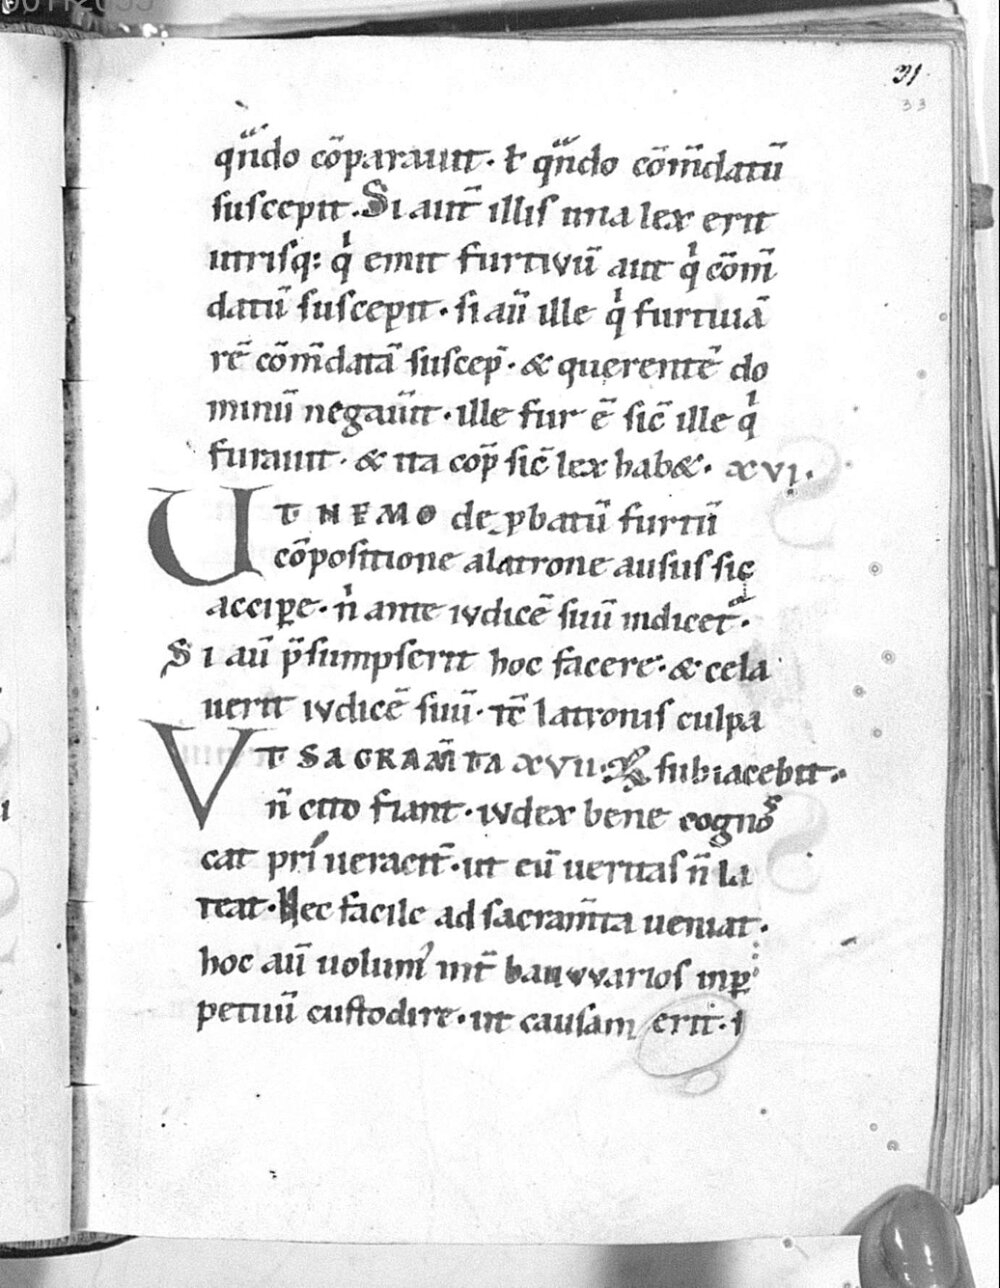 31
33
qn̄do cōparauit· ł qn̄do cōm̄datū
suscepit. Si aut̄ illis una lex erit
utrisq: qͥ emit furtivū aut qͥ cōm̄
datū suscepit· si aū ille qͥ furtiuā
rē cōm̄datā suscep̄· & querentē do
minū negauīt· ille fur ē sic̄ ille qͥ
furauit· & ita cop̄ sic̄ lex hab&· xvı·
UT NEMO de ꝓbatū furtū
cōpositione alatrone ausus sit
accipe· n̄ ante ivdicē suū indicet·
Si aū p̄sumpserit hoc facere· & cela
uerit ivdicē suū· tc̄ latronis culpa
VT SACRAM̄TA xvıı· subiacebit·
n̄ cito fiant· ivdex bene cognos
cat pri ueracit̄· ut eū ueritas n̄ la
teat· Nec facile ad sacram̄ta ueniat·
hoc aū uolum' int̄ bauvvarios inꝑ
petuū custodire· ut causam erit· i